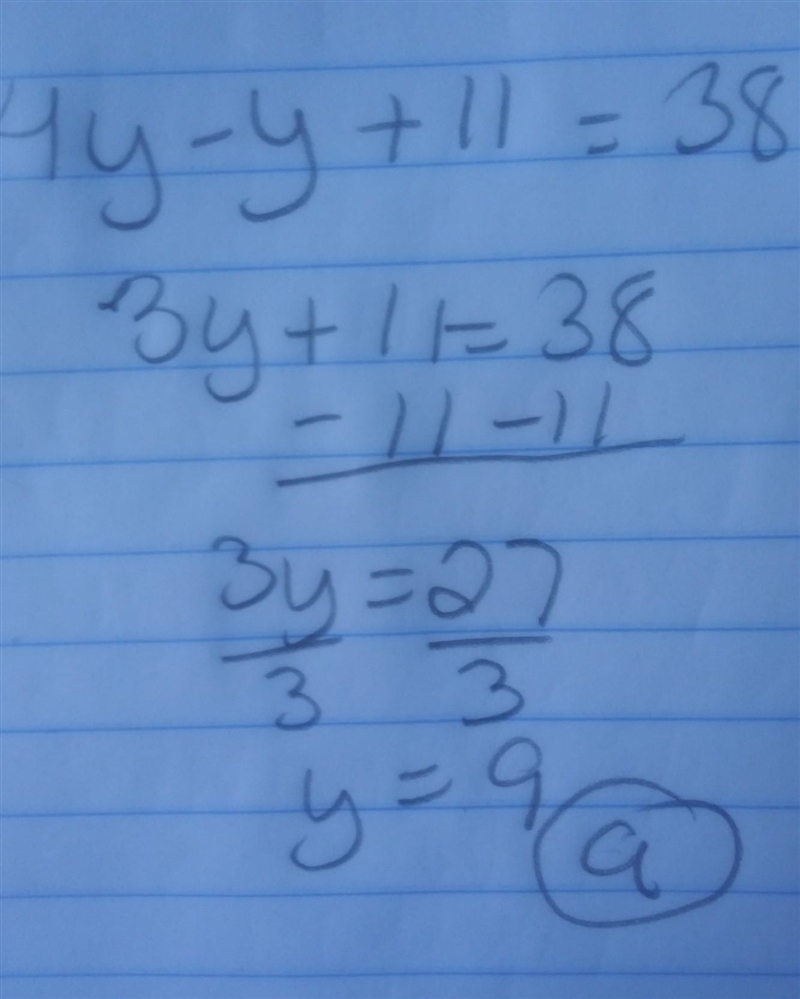 4y - y + 11 = 38
3y + 11 = 38
- 11 - 11
3y = 27
3 3
y = 9
a